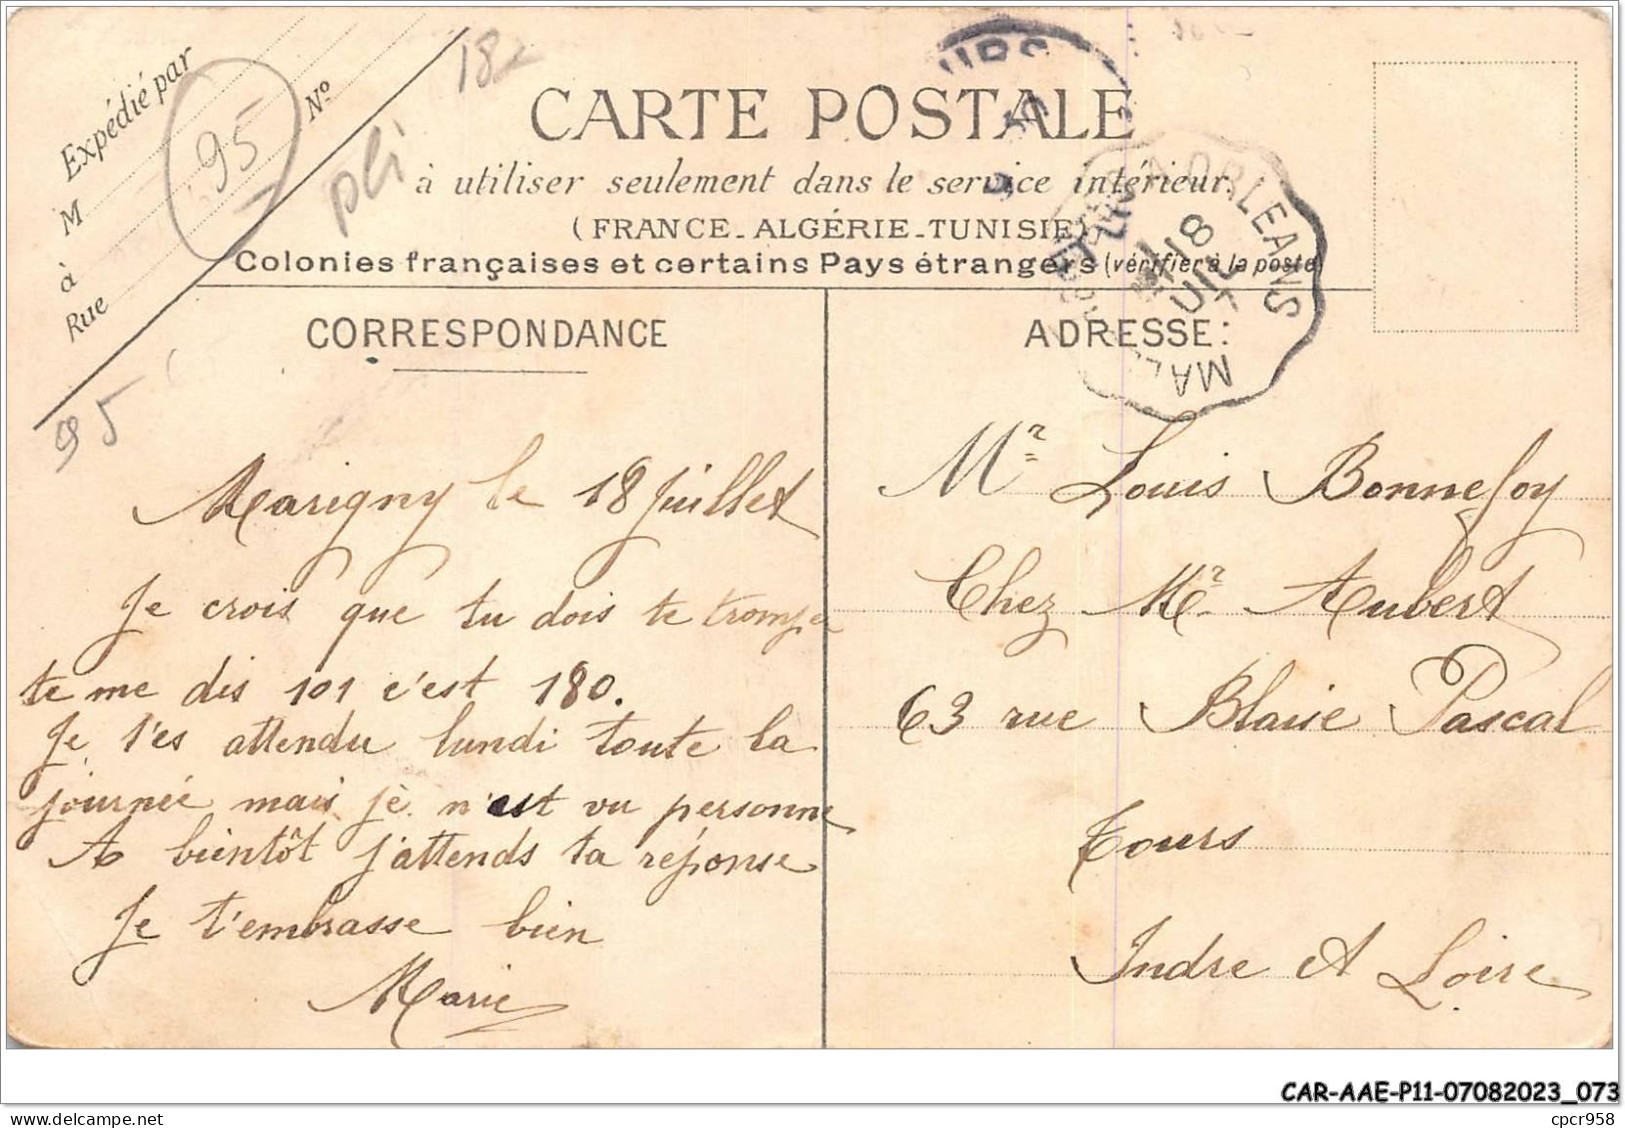 Expédié par
M
à
Rue
N°
95
95
18
pli
CARTE POSTALE
à utiliser seulement dans le service intérieur.
(FRANCE_ALGÉRIE_TUNISIE)
Colonies françaises et certains Pays étrangers (vérifier à la poste)
MAL À ORLEANS
18
JUIL
CORRESPONDANCE
ADRESSE:
Marigny le 18 Juillet
Je crois que tu dois te tromper
te me dis 101 c'est 180.
Je t'es attendu lundi toute la
journée mais je n'est vu personne
A bientôt j'attends ta réponse
Je t'embrasse bien
Marie
Mr Louis Bonnefoy
Chez Mr Aubert
63 rue Blaise Pascal
Tours
Indre et Loire
CAR-AAE-P11-07082023_073
cpcr958